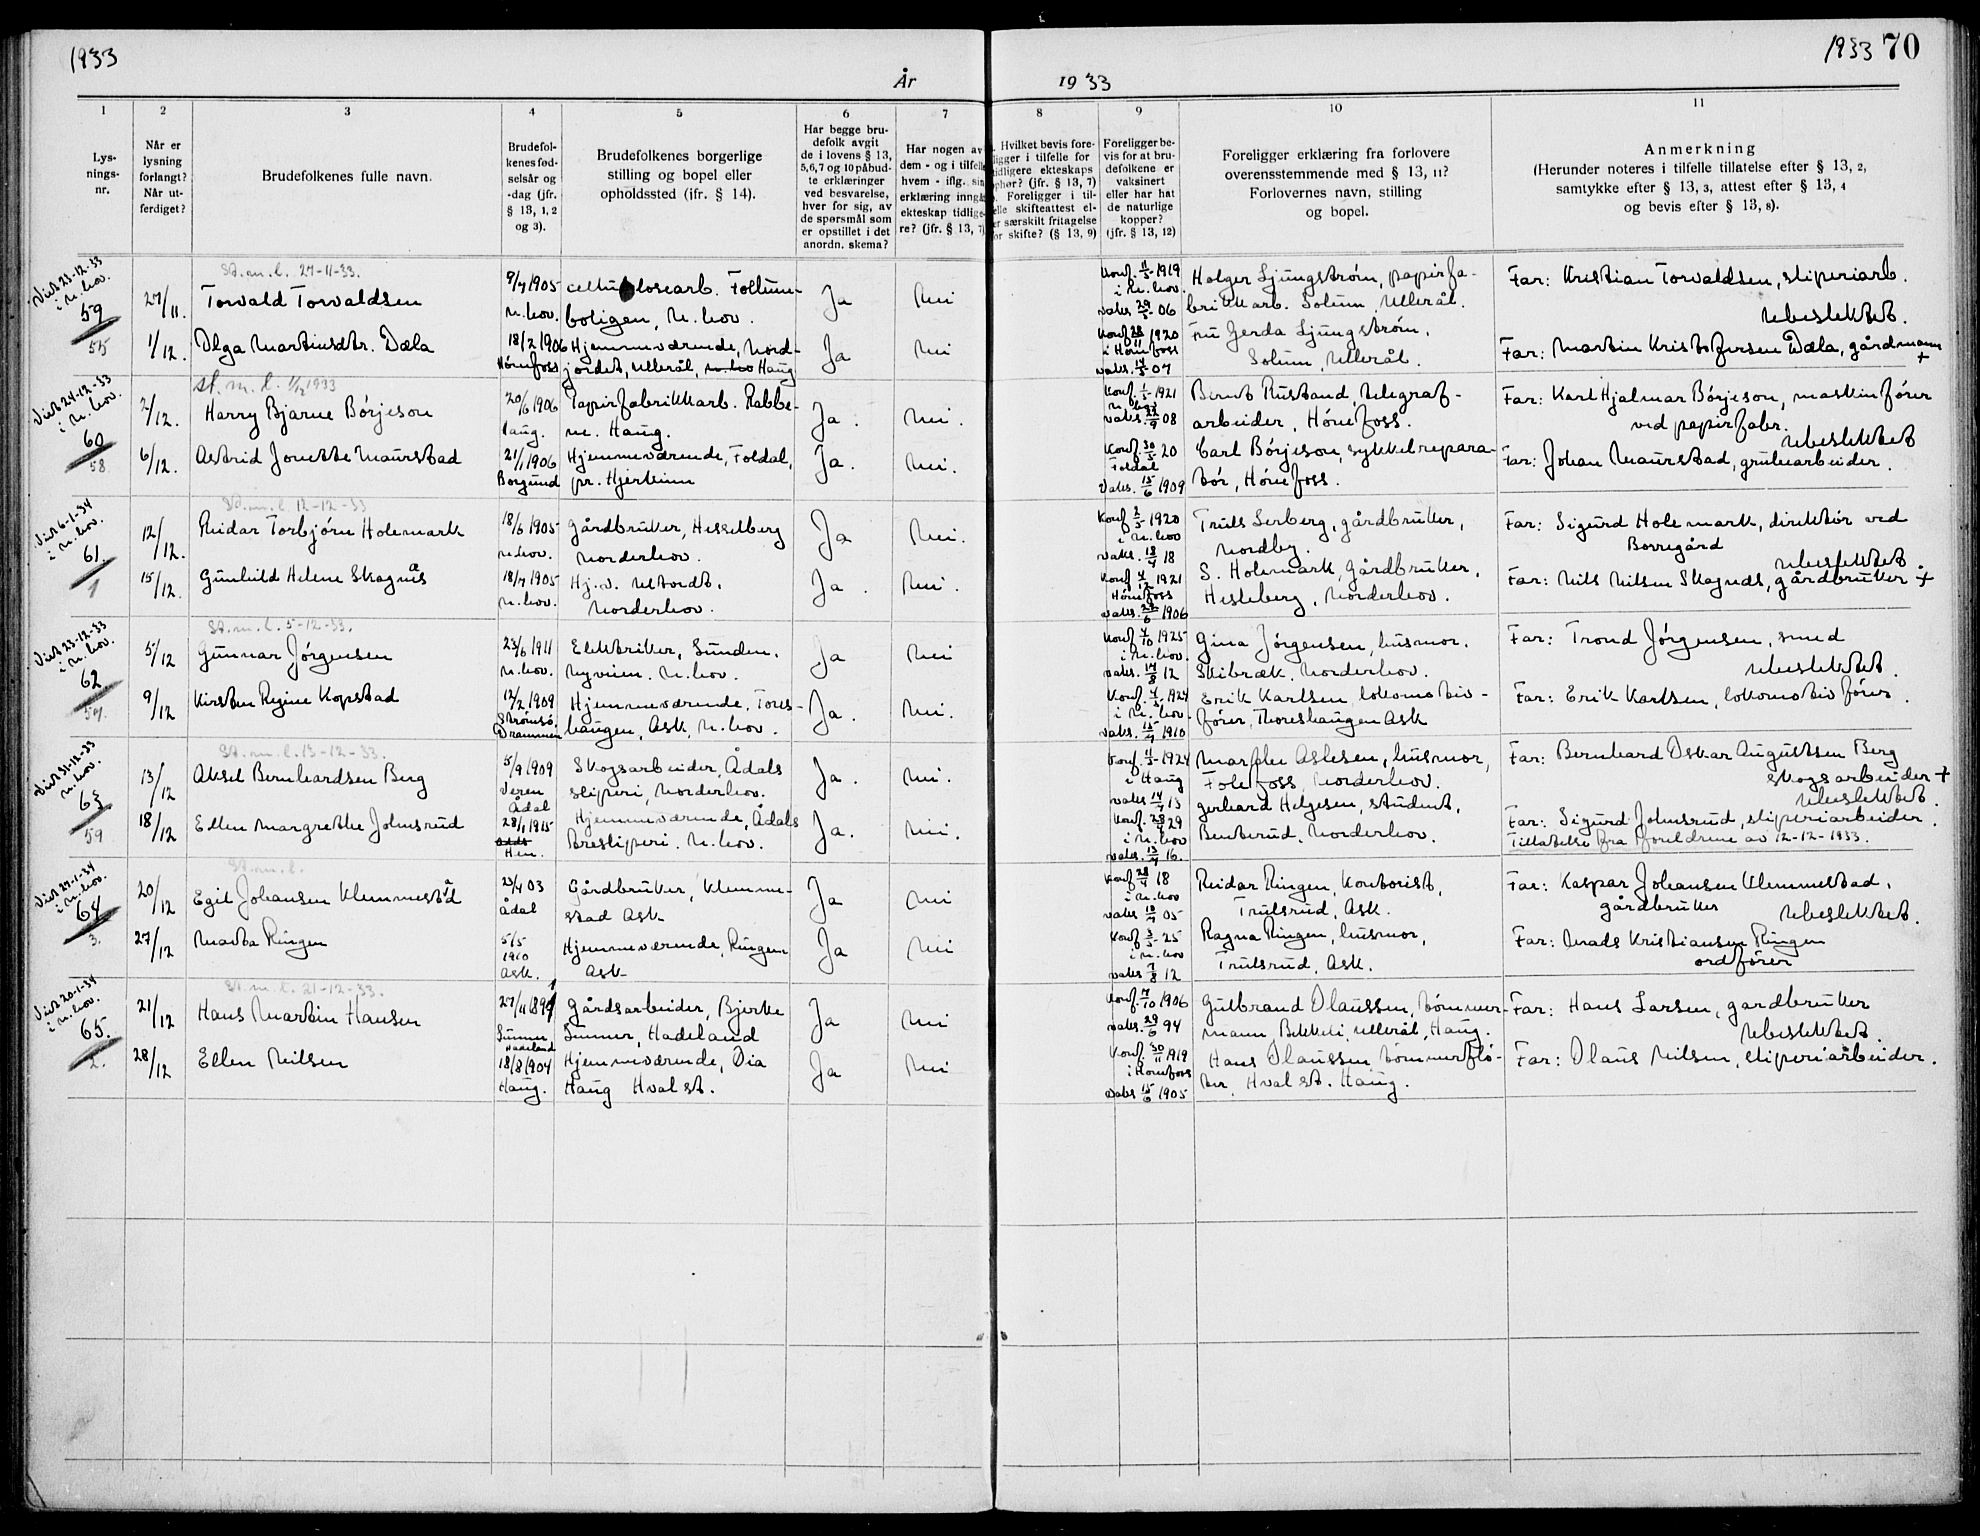 1933
År
1933
1933 70
1
Lys-
nings-
nr.
2
Når er
lysning
forlangt?
Når ut-
ferdiget?
3
Brudefolkenes fulle navn.
4
Brudefol-
kenes fød-
selsår og
-dag (jfr.
§ 13, 1, 2
og 3).
5
Brudefolkenes borgerlige
stilling og bopel eller
opholdssted (ifr. § 14).
6
Har begge bru-
defolk avgit
de i lovens § 13,
5,6,7 og 10 påbud-
te erklæringer
ved besvarelse,
hver for sig, av
de spørsmål som
er opstillet i det
anordn. skema?
7
Har nogen av
dem - og i tilfelle
hvem - iflg. sin
erklæring inngå
ekteskap tidlige-
re? (jfr. § 13, 7)
8
Hvilket bevis fore-
ligger i tilfelle for
tidligere ekteskaps
ophør? (jfr. § 13, 7)
Foreligger i til-
felle skifteattest el-
er særskilt fritagelse
for skifte? (§ 13, 9)
9
Foreligger be-
vis for at bru-
defolkene er
vaksinert
eller har hat
de naturlige
kopper?
(jfr. § 13, 12)
10
Foreligger erklæring fra forlovere
overensstemmende med § 13, 11?
Forlovernes navn, stilling
og bopel.
11
Anmerkning
(Herunder noteres i tilfelle tillatelse efter § 13, 2,
samtykke efter § 13, 3, attest efter § 13, 4
og bevis efter § 13, 8).
Viet 23-12-33
i N. hov.
59
55
St. m. l. 27-11-33.
27/11
Torvald Torvaldsen
9/7 1905
N. hov.
cellulosearb. Follum-
boligen, N. hov.
Ja
Nei
Konf. 11/5 1919
i N. hov.
vaks 29/5 06
Holger Ljungstrøm, papirfa-
brikkarb. Solum, Ullerål.
Far: Kristian Torvaldsen, sliperiarb.
Ubeslektet.
1/12.
Olga Martinsdtr. Dæla
18/2 1906
Hønefoss
Hjemmeværende, Nord-
jordet, Ullerål, N. hov Haug
Ja
Nei
Konf 28/11 1920
i Hønefoss
vaks. 14/5 07
Fru Gerda Ljungstrøm,
Solum, Ullerål.
Far: Martin Kristofersen Dæla, gårdmann +
Viet 24-12-33
i N. hov.
60
58.
st. m. l. 1/12 1933
2/12.
Harry Bjarne Börjeson
20/6 1906
Haug.
Papirfabrikkarb. Rabbe-
ne. Haug.
Ja.
Nei.
Konf. 1/5 1921
N. hov
vaks. 22/9 08
Bernt Rustand, telegraf-
arbeider, Hönefoss.
Far: Karl Hjalmar Börjeson, maskinförer
ved papirfabr.
Ubeslektet
6/12.
Aastrid Jonette Maurstad
21/1 1906
Borgund
Hjemmeværende, Foldal,
pr. Hjerkinn
Ja.
Nei.
Konf. 30/5 20
Foldal
Vaks. 15/6 1909
Carl Börjeson, sykkelrepara-
tör, Hönefoss.
Far: Johan Maurstad, grubearbeider.
Viet 6-1-34
i N. hov.
61.
1
St. m. l 12-12-33
12/12.
Reidar Torbjörn Holemark
18/6 1905
N. hov.
Gårdbruker, Hesselberg
Norderhov.
Ja
Nei.
Konf 2/5 1920
i N. hov
vaks. 18/4 18
Truls Lerberg, gårdbruker,
Nordby.
Far: Sigurd Holemark, direktör ved
Borregård
Ubeslektet.
15/12.
Gunhild Helene Skagnæs
18/4 1905
N. hov.
Hj. v. Ultvedt,
Norderhov.
Ja.
Nei.
Konf 4/12 1921
Hønefoss
vaks. 28/6 1906
S. Holemark, Gårdbruker,
Hesleberg, Norderhov.
Far: Nils Nilsen Skagnæs, gårdbruker +
Viet 23-12-33
i N. hov.
62
57.
St. m. l. 5-12-33.
5/12
Gunnar Jörgensen
23/6 1911
N. hov.
Elektriker, Sunden,
Nyveien. N. hov.
Ja
Nei
Konf. 4/10 1925
i N. hov.
vaks. 14/8 12
Gina Jørgensen, husmor.
Skibræk. Norderhov.
Far: Trond Jörgensen, smed
Ubeslektet.
9/12
Kirsten Regine Kopstad
12/2 1909
Strømsö.
Drammen
Hjemmeværende, Tores-
haugen, Ask, N. hov.
Ja.
Nei.
Konf. 4/5 1924
i N. hov.
vaks. 15/7 1910
Erik Karlsen, lokomotiv-
fører, Thoreshaugen Ask
Far: Erik Karlsen, lokomotivförer.
Viet 31-12-33
N. hov.
63
59.
St. m. l. 13-12-33.
13/12
Aksel Bernhardsen Berg
5/9 1909
Veren
Ådal
Skogsarbeider, Ådals
sliperi, Norderhov.
Ja.
Nei.
Konf. 4/5 1924
i Haug
vaks 14/7 13
Marthe Aslesen, husmor,
Folefoss, Norderhov.
Far: Bernhard Oskar Augustsen Berg
Skogsarbeider +
Ubeslektet.
18/12
Ellen Margrethe Johnsrud
28/1 1915
Hen.
Hjemmeværende, Ådals
tresliperi. N. hov.
Ja.
Nei.
Konf. 28/4 29
i N. hov
vaks. 13/7 16.
Gerhard Helgesen, student,
Benterud, Norderhov.
Far: Sigurd Johnsrud, sliperiarbeider.
Tillatelse fra foreldrene av 12-12-1933.
Viet 27-1-34
i N. hov.
64
3.
St. m. l.
20/12
Egil Johansen Klemmestad
23/4 03
Ådal
Gårdbruker, Klemme-
stad Ask
Ja
Nei
Konf 28/4 18
i N. hov
vaks 10/7 05
Reidar Ringen, kontorist,
Trulsrud, Ask.
Far: Kaspar Johansen Klemmestad,
gårdbruker
Ubeslektet.
27/12
Marta Ringen
5/5
1910
Ask.
Hjemmeværende, Ringen
Ask
Ja
Nei
Konf. 3/5 25
i N. hov
vaks 7/8 12
Ragna Ringen, husmor,
Trulsrud, Ask.
Far: Mads Kristiansen Ringen
ordfører
Viet 20-1-34
i N. hov.
65.
2.
St. m. l. 21-12-33.
21/12
Hans Martin Hansen
27/11 1891
Gunner
Hadeland
Gårdsarbeider, Bjerke
Gunner, Hadeland
Ja
Nei
Konf. 7/10 1906
vaks. 29/6 94
Gulbrand Olaussen, tömmer-
mann, Bekkeli, Ullerål, Haug.
Far: Hans Larsen, gardbruker
Ubeslektet.
28/12
Ellen Nilsen
18/8 1904
Haug.
Hjemmeværende, Dia
Haug Hval st.
Ja
Nei
Konf. 30/11 1919
i Hønefoss
vaks 15/6 1905
Hans Olaussen, tömmerflö-
ter, Hval st. Haug.
Far: Olaus Nilsen, sliperiarbeider.